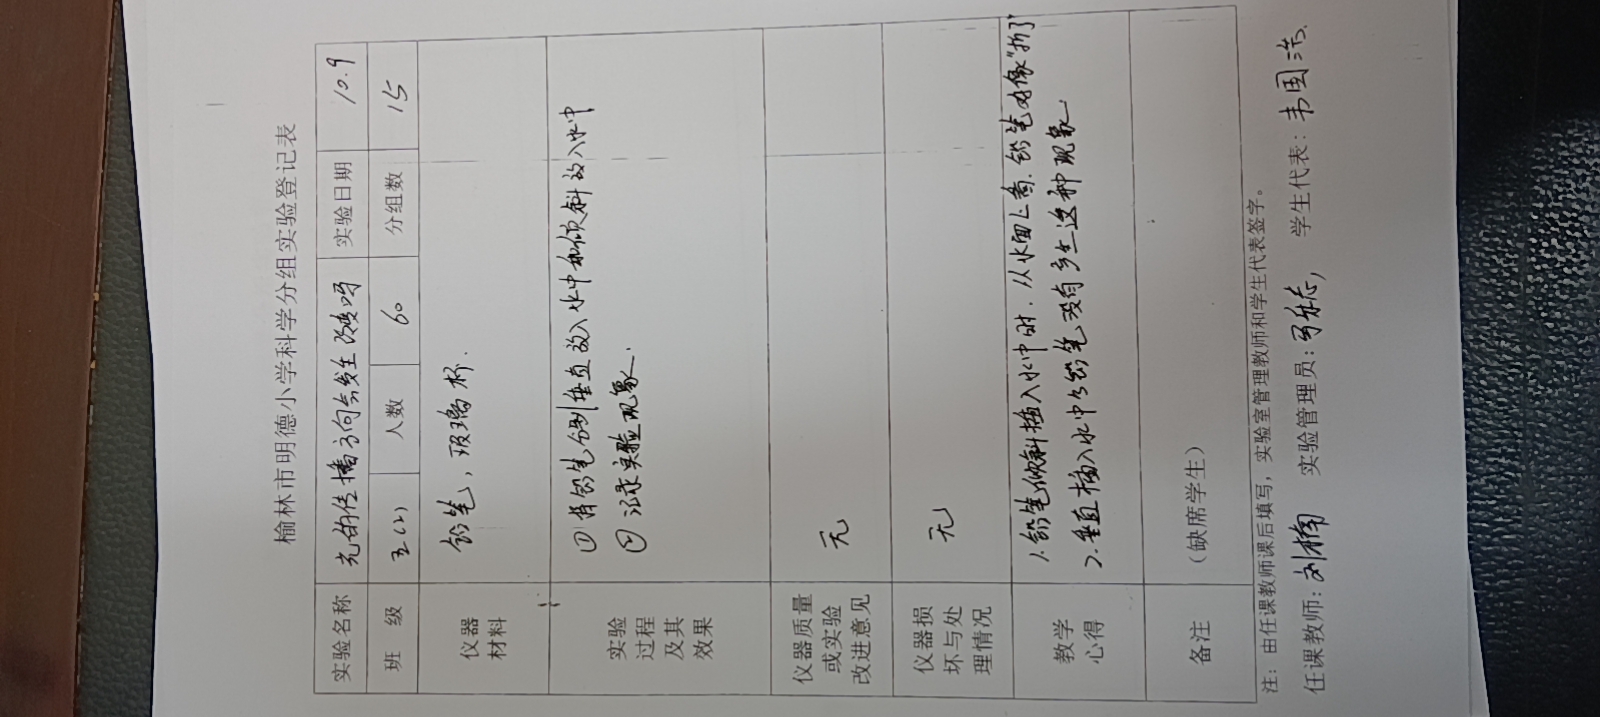 榆林市明德小学科学分组实验登记表
实验名称 光的传播方向会发生改变吗 实验日期 10.9
班级 五(2) 人数 60 分组数 15
仪器材料 铅笔，玻璃杯.
实验过程及其效果 ①将铅笔分别垂直放入水中和倾斜的放入水中
②记录实验现象.
仪器质量或实验改进意见 无
仪器损坏与处理情况 无
教学心得 1.铅笔倾斜插入水中时.从水面上看.铅笔好像"折了"
2.垂直插入水中的铅笔没有产生这种现象
备注 (缺席学生)
注：由任课教师课后填写，实验室管理教师和学生代表签字。
任课教师:刘楠 实验管理员: 学生代表:韦国